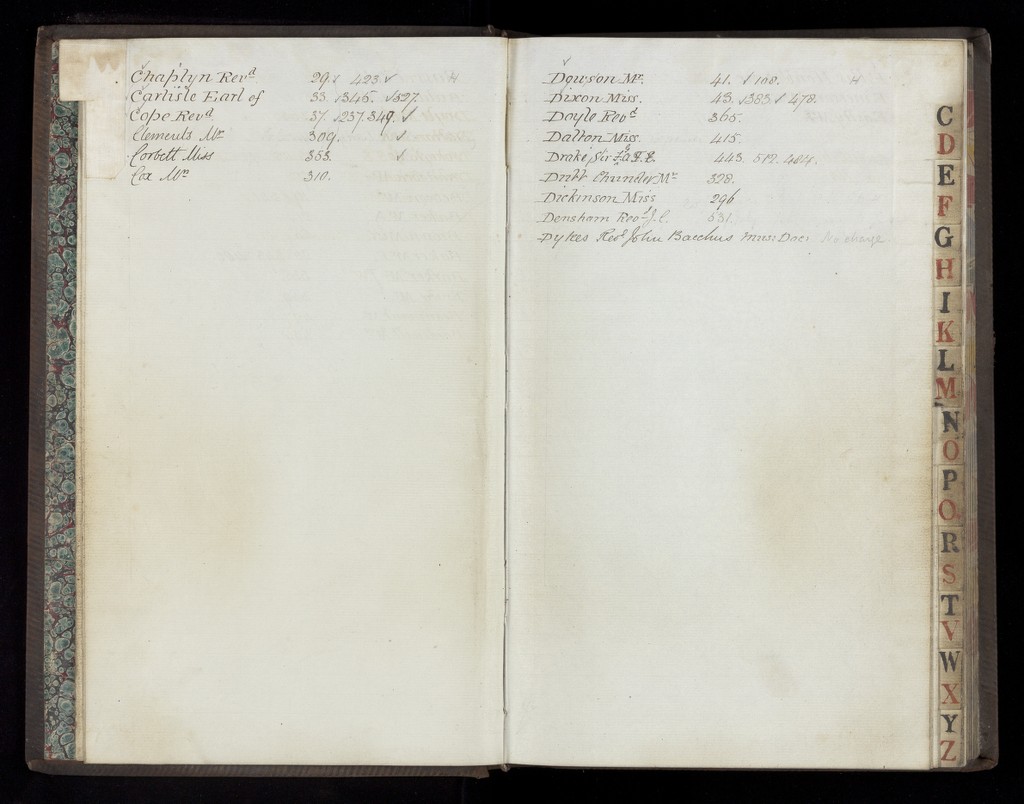 Chaplyn Revd 29 √ 423 √ H
Carlisle Earl of 33. √346. √527.
Cope Revd 37. √237. 349. √
Clements Mr 309. √
Corbett Miss 353. √
Cox Mrs 310.
√
Dowson Mr. 41. √ 108. H
Dixon Miss. 43. √383. √ 478.
Doyle Revd 365.
Dalton Miss. 415.
Drake, Sir 443. 512. 484.
Dutt Chunder Mr 328.
Dickinson Miss 296
Densham Revd J.C. 531.
Dykes Revd John Bacchus Mus: Doc: No charge
C
D
E
F
G
H
I
K
L
M
N
O
P
Q
R
S
T
V
W
X
Y
Z